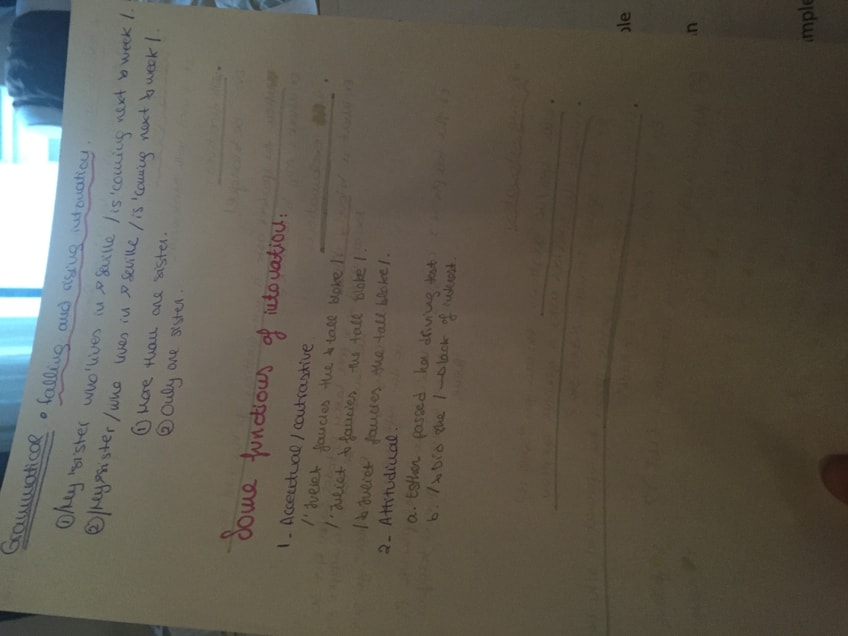 Grammatical • falling and rising intonation.
① /My ↘sister who 'lives in ↘Seville /is 'coming next ↘week/.
② /My ↘sister/who lives in ↘Seville/is 'coming next ↘week/.
① More than one sister.
② Only one sister.
Some functions of intonation:
1- Accentual/contrastive
/'Juliet fancies the ↘tall bloke/.
/'Juliet ↘fancies the tall bloke/.
/↘Juliet fancies the tall bloke/.
2- Attitudinal.
a. Esther passed her driving test.
b. /↘Did she/ → lack of interest.
ple
n
mple